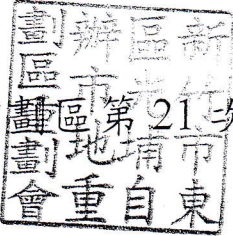 新竹市東
區光埔自
辦市地重
劃區劃會
劃區第 21